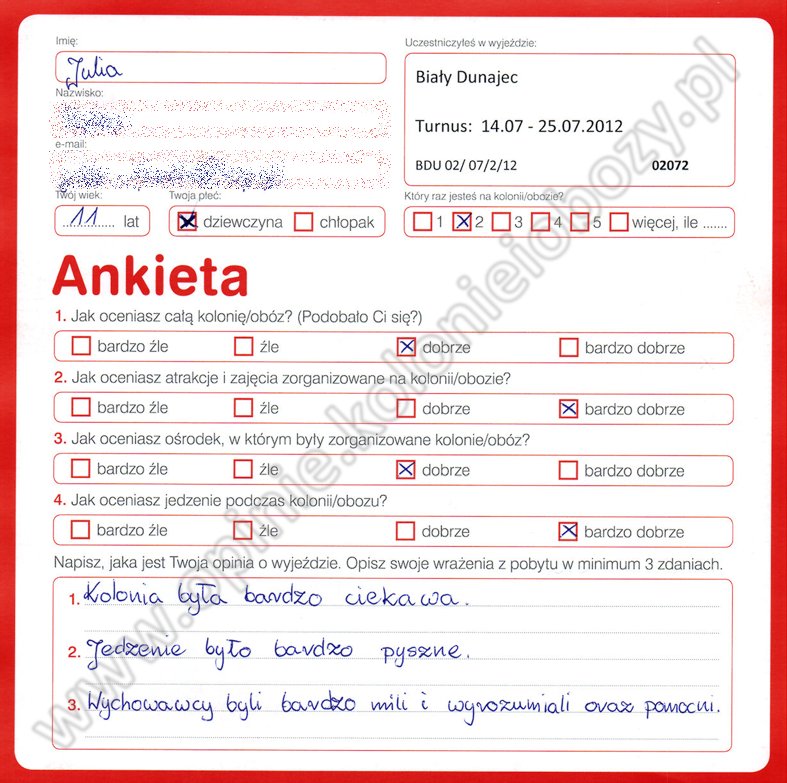 Imię:
Julia
Nazwisko:
e-mail:
Twój wiek:
11 lat
Twoja płeć:
dziewczyna chłopak
Uczestniczyłeś w wyjeździe:
Biały Dunajec
Turnus: 14.07 - 25.07.2012
BDU 02/ 07/2/12 02072
Który raz jesteś na kolonii/obozie?
1 2 3 4 5 więcej, ile .......
Ankieta
1. Jak oceniasz całą kolonię/obóz? (Podobało Ci się?)
bardzo źle źle dobrze bardzo dobrze
2. Jak oceniasz atrakcje i zajęcia zorganizowane na kolonii/obozie?
bardzo źle źle dobrze bardzo dobrze
3. Jak oceniasz ośrodek, w którym były zorganizowane kolonie/obóz?
bardzo źle źle dobrze bardzo dobrze
4. Jak oceniasz jedzenie podczas kolonii/obozu?
bardzo źle źle dobrze bardzo dobrze
Napisz, jaka jest Twoja opinia o wyjeździe. Opisz swoje wrażenia z pobytu w minimum 3 zdaniach.
1. Kolonia była bardzo ciekawa.
2. Jedzenie było bardzo pyszne.
3. Wychowawcy byli bardzo mili i wyrozumiali oraz pomocni.
www.opinie.kolonieiobozy.pl